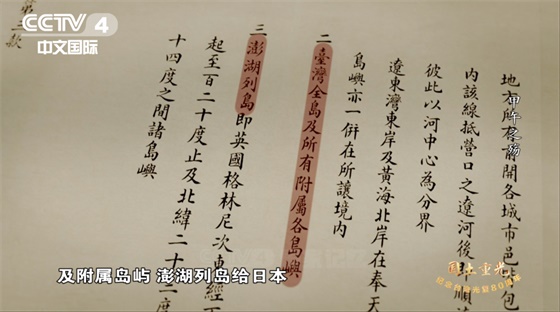 CCTV 4
中文国际
地方所有前開各城市邑皆包
內該線抵營口之遼河後即順
彼此以河中心為分界
遼東灣東岸及黃海北岸在奉天
島嶼亦一併在所讓境內
二 臺灣全島及所有附屬各島嶼
三 澎湖列島即英國格林尼次東經
起至百二十度止及北緯二十
十四度之間諸島嶼
甲午
及附属岛屿 澎湖列岛给日本
国土重光
纪念台湾光复80周年